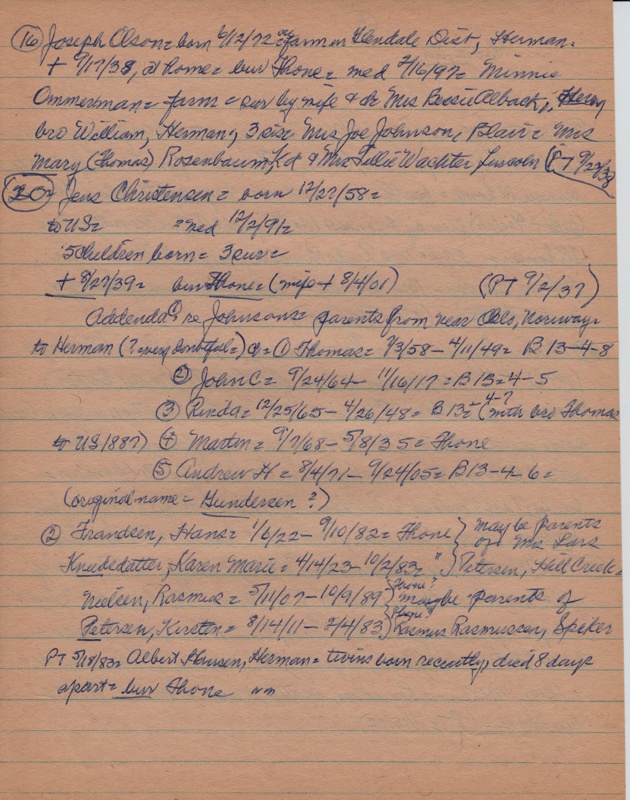 (16) Joseph Olson = born 6/12/72 at farm in Glendale Dist, Herman.
+ 9/17/38, at home = bur Thone = med 2/16/97 = Minnie
Ommerman = farm = sur by wife & dr Mrs Bessie Alback;
bro William, Herman, 3 sis Mrs Joe Johnson, Blair = Mrs
Mary (Thomas) Rosenbaum, & Mrs Tillie Wachter, Lincoln (PT 9/22/38
(20) Jens Christensen = born 12/27/58 =
to US = = med 12/2/91 =
5 children born = 3 sur =
+ 8/27/39 = bur Thone = (wife + 8/4/01) (PT 9/2/37)
Addenda = re Johnsons = parents from near Oslo, Norway =
to Herman (? = very doubtful =) (1) Thomas = 9/3/58 - 4/11/49 = B 13-4-8
(2) John C = 9/24/64 - 11/16/17 = B 13-4-5
(3) Rinda = 12/25/65 - 4/26/48 = B 13 = 4-? (with bro Thomas
to US 1887) (4) Marten = 9/7/68 - 5/8/35 = Thone
(5) Andrew H = 8/4/71 - 9/24/05 = B 13-4-6 =
(original name = Gundersen ?)
(2) Frandsen, Hans = 1/6/22 - 9/10/82 = Thone } may be parents
of Mrs Lars
Knudsdatter, Karen Marie = 4/14/23 - 10/2/83 = " } Petersen, Hill Creek
Nielsen, Rasmus = 5/11/07 - 10/9/89 } Thone? maybe parents of
Petersen, Kirsten = 8/14/11 - 2/4/83 } Thone? Rasmus Rasmussen, Spiker
PT 5/18/83 = Albert Hansen, Herman = twins born recently, died 8 days
apart = bur Thone